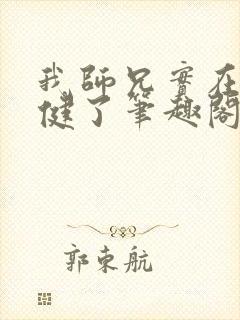 我師兄實在
健了筆趣閣
郭東航